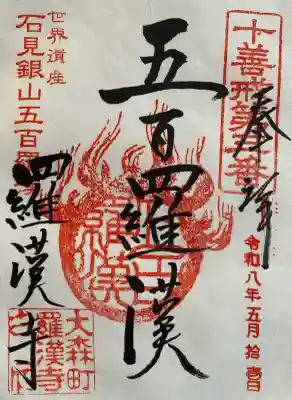 十善戒第
奉拝
令和八年五月拾壱日
五百羅漢
羅漢
世界遺産
石見銀山五百羅
羅漢寺
大森町
羅漢寺